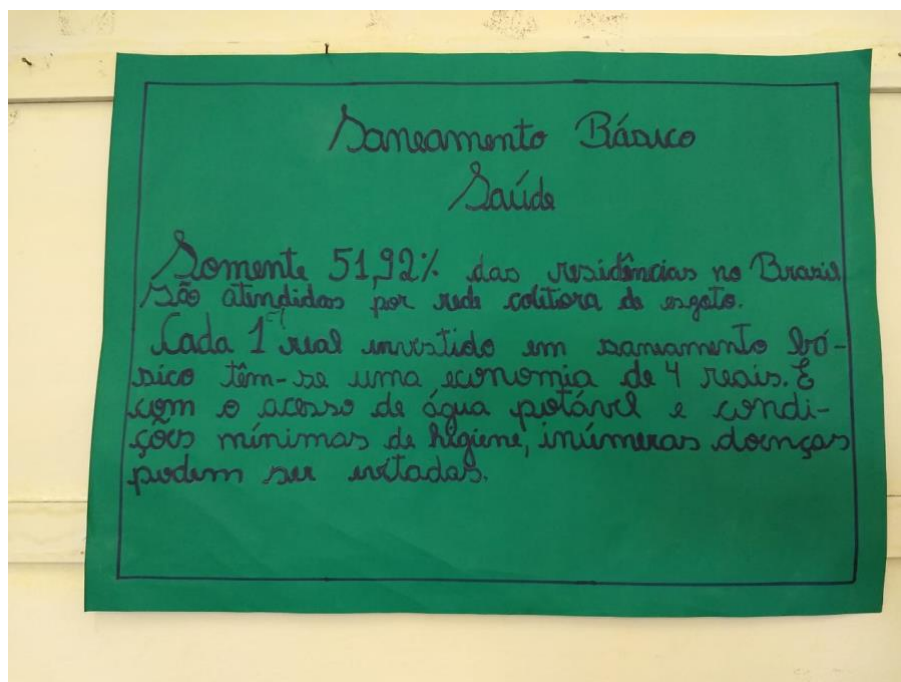 Saneamento Básico
Saúde
Somente 51,92% das residências no Brasil
são atendidas por rede colitora de esgoto.
Cada 1 real investido em saneamento bá-
sico têm-se uma economia de 4 reais. E
com o acesso de água potável e condi-
ções mínimas de higiene, inúmeras doenças
podem ser evitadas.